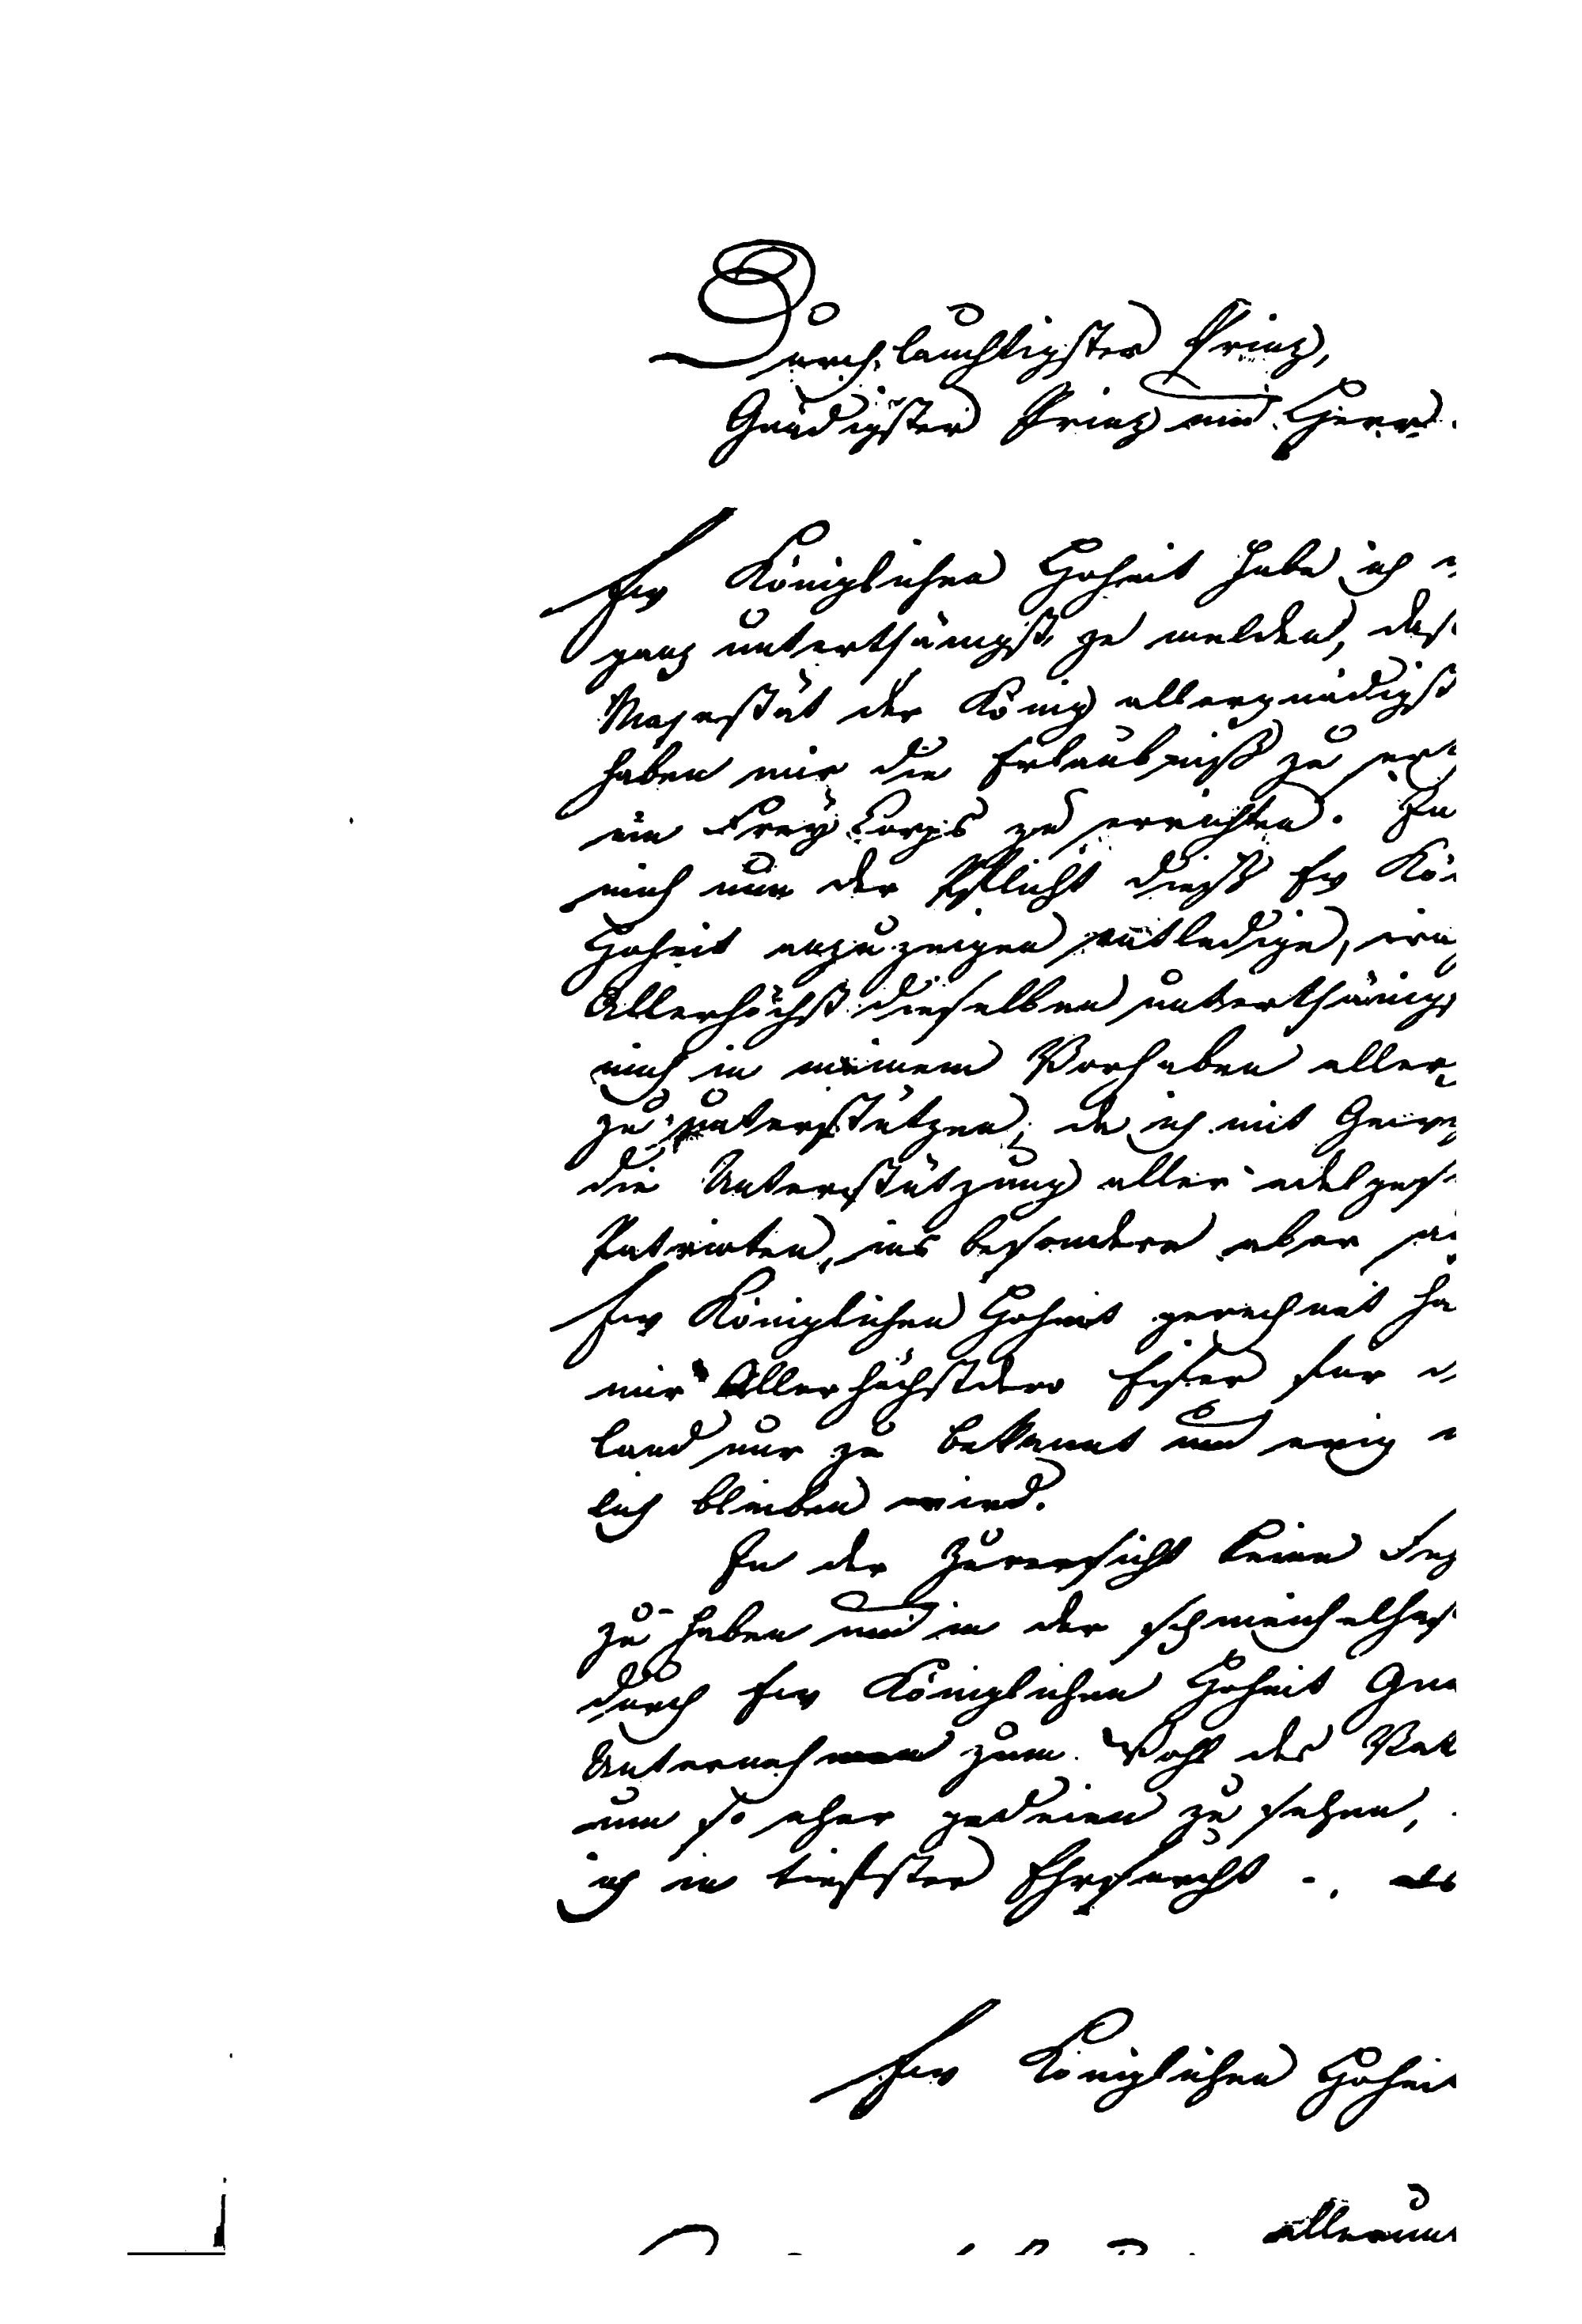 Durchlauchtigster Prinz,
Gnädigster Prinz und Herr.
Ew Königlichen Hoheit habe ich
ganz unterthänigst zu melden, das
Majestät der König allergnädigst
haben mir die Erlaubniß zu ert
ein Frey Corps zu errichten. In
mich nun der Pflicht dieß Ew Kön
Hoheit anzuzeigen entledige, wag
Allerhöchst dieselben unterthänigs
mich in meinem Vorhaben aller
zu unterstützen, da ich mit Gewi
die Unterstützung aller edelges
Patrioten, ins besondere aber
Ew Königlichen Hoheit gerechnet ha
mir Allerhöchstdero Eifer für
land nur zu bekannt und ewig
lich bleiben wird.
In der Zuversicht keine Feh
zu haben und in der schmeichelhaf
durch Ew Königlichen Hoheit Gna
Unternehmen zum Wohl des Vat
um so eher gedeien zu sehen,
ich in tiefster Ehrfurcht als
Ew Königlichen Hoheit
allerun